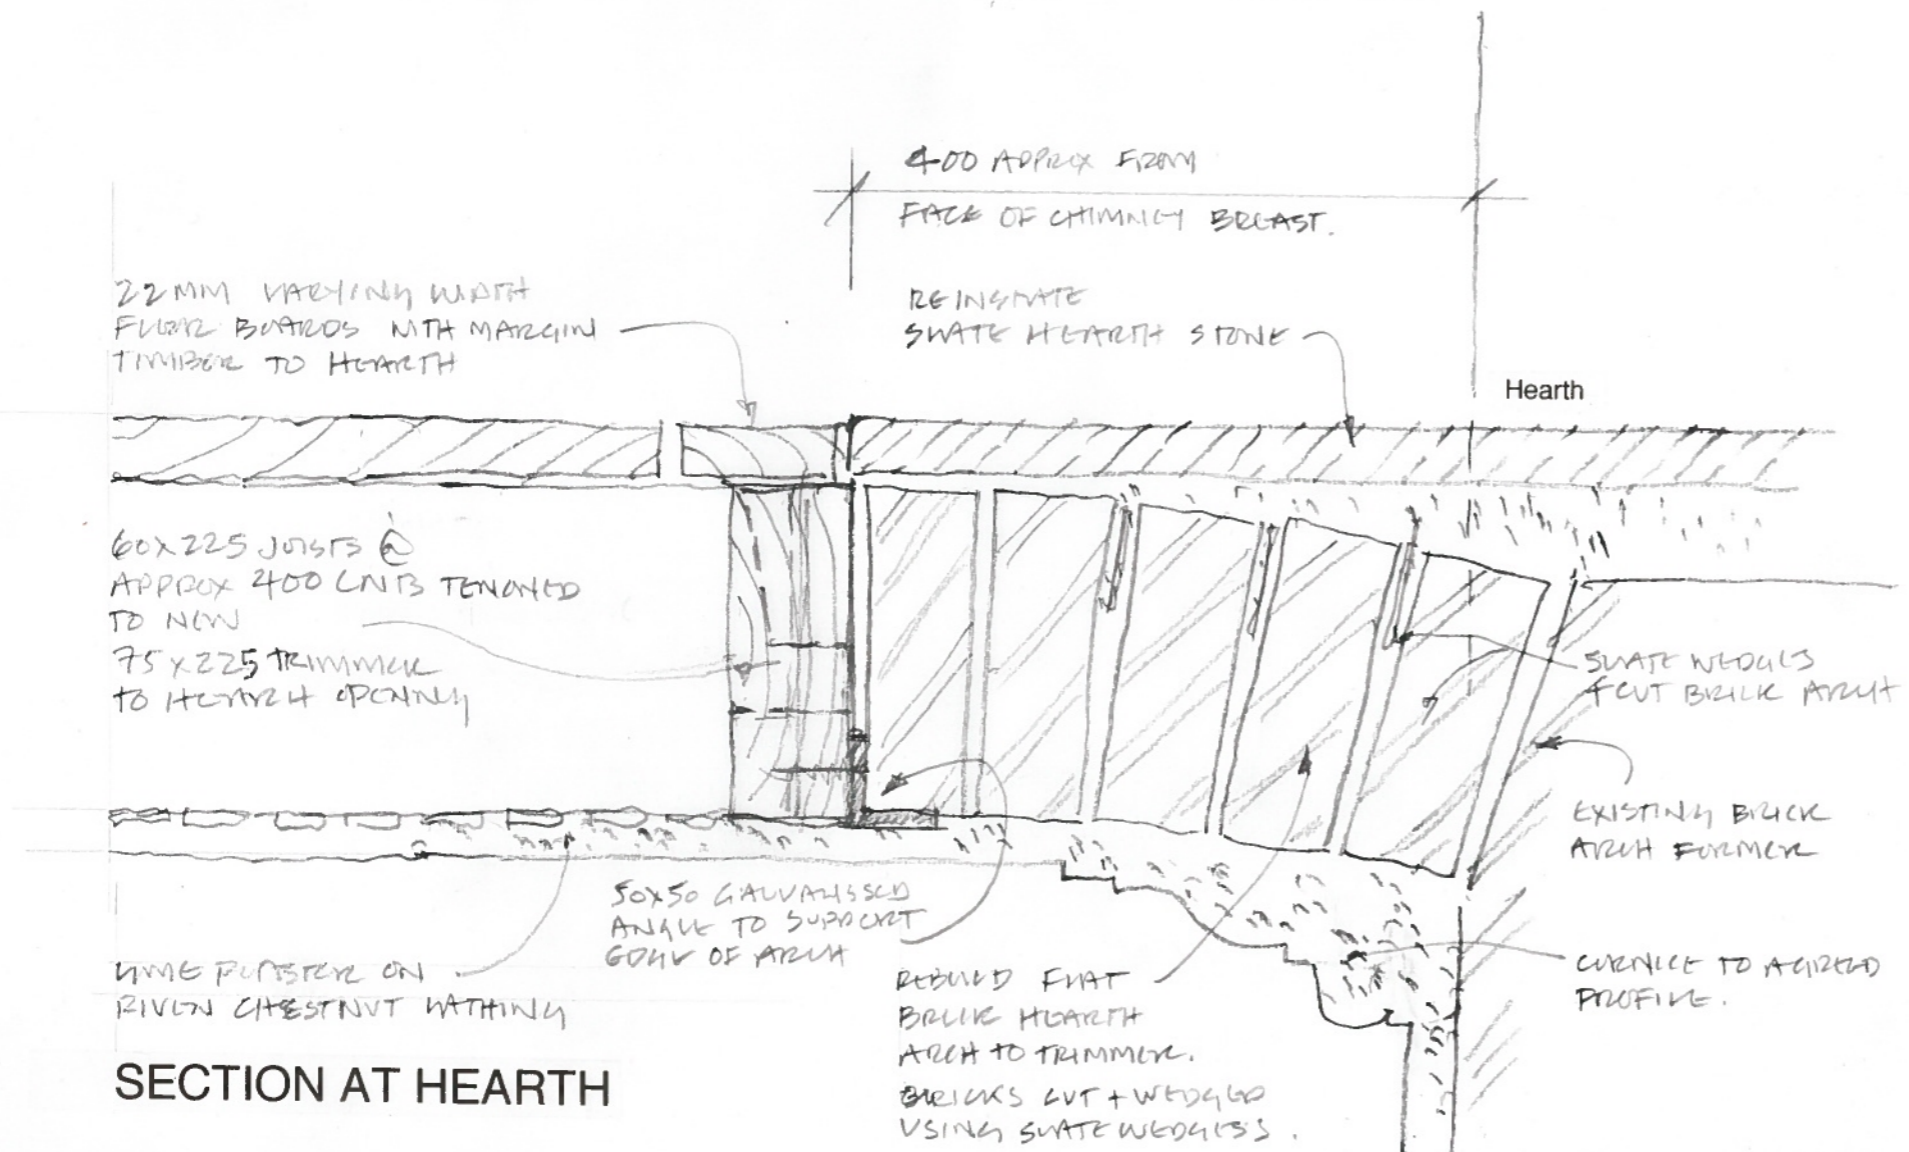 400 APPROX FROM
FACE OF CHIMNEY BREAST.
22MM VARYING WIDTH
FLOOR BOARDS WITH MARGIN
TIMBER TO HEARTH
REINSTATE
SLATE HEARTH STONE
Hearth
60x225 JOISTS @
APPROX 400 CNTS TENONED
TO NEW
75x225 TRIMMER
TO HEARTH OPENING
SLATE WEDGES
+ CUT BRICK ARCH
EXISTING BRICK
ARCH FORMER
50x50 GALVANISED
ANGLE TO SUPPORT
EDGE OF ARCH
LIME PLASTER ON
RIVEN CHESTNUT LATHING
REBUILD FLAT
BRICK HEARTH
ARCH TO TRIMMER.
BRICKS CUT + WEDGED
USING SLATE WEDGES.
CORNICE TO AGREED
PROFILE.
SECTION AT HEARTH